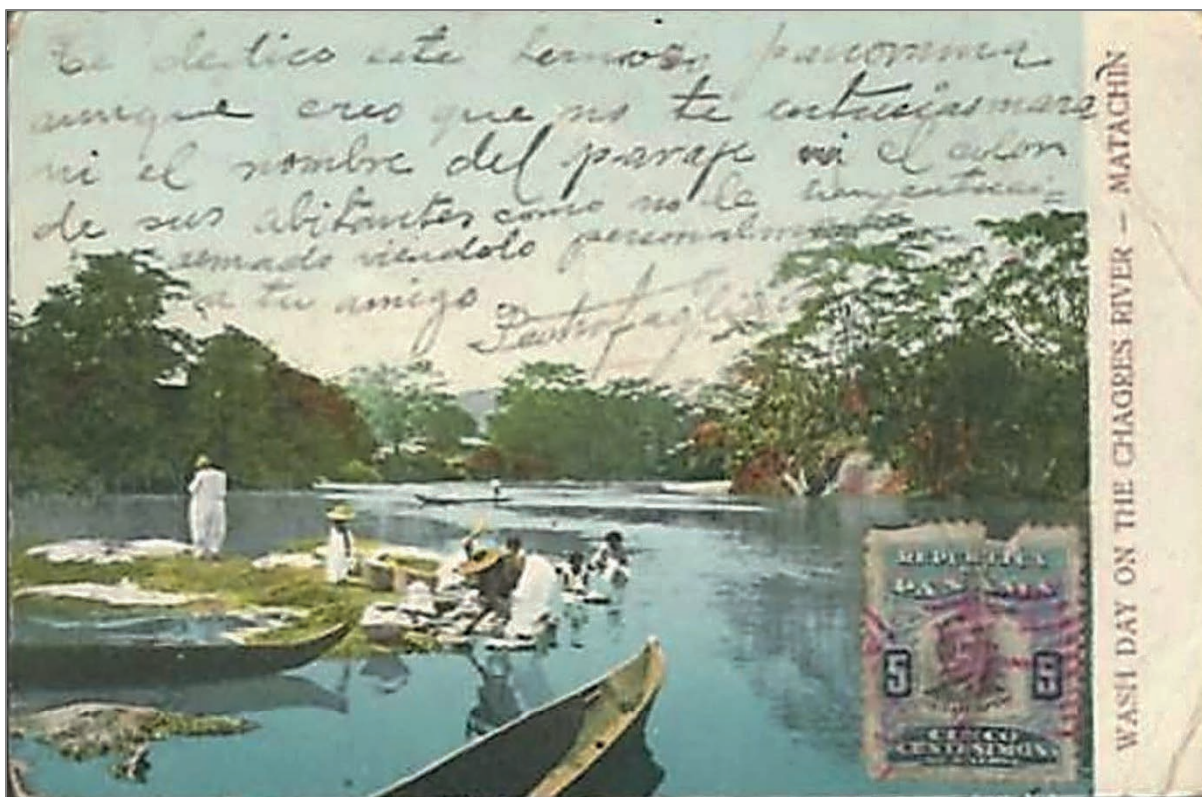 Te dedico este hermoso panorama
aunque creo que no te entusiasmara
ni el nombre del paraje ni el color
de sus abitantes como no le
viendolo personalmente
a tu amigo
WASH DAY ON THE CHAGRES RIVER – MATACHIN
REPUBLICA
PANAMA
5 5
CINCO
CENTESIMOS